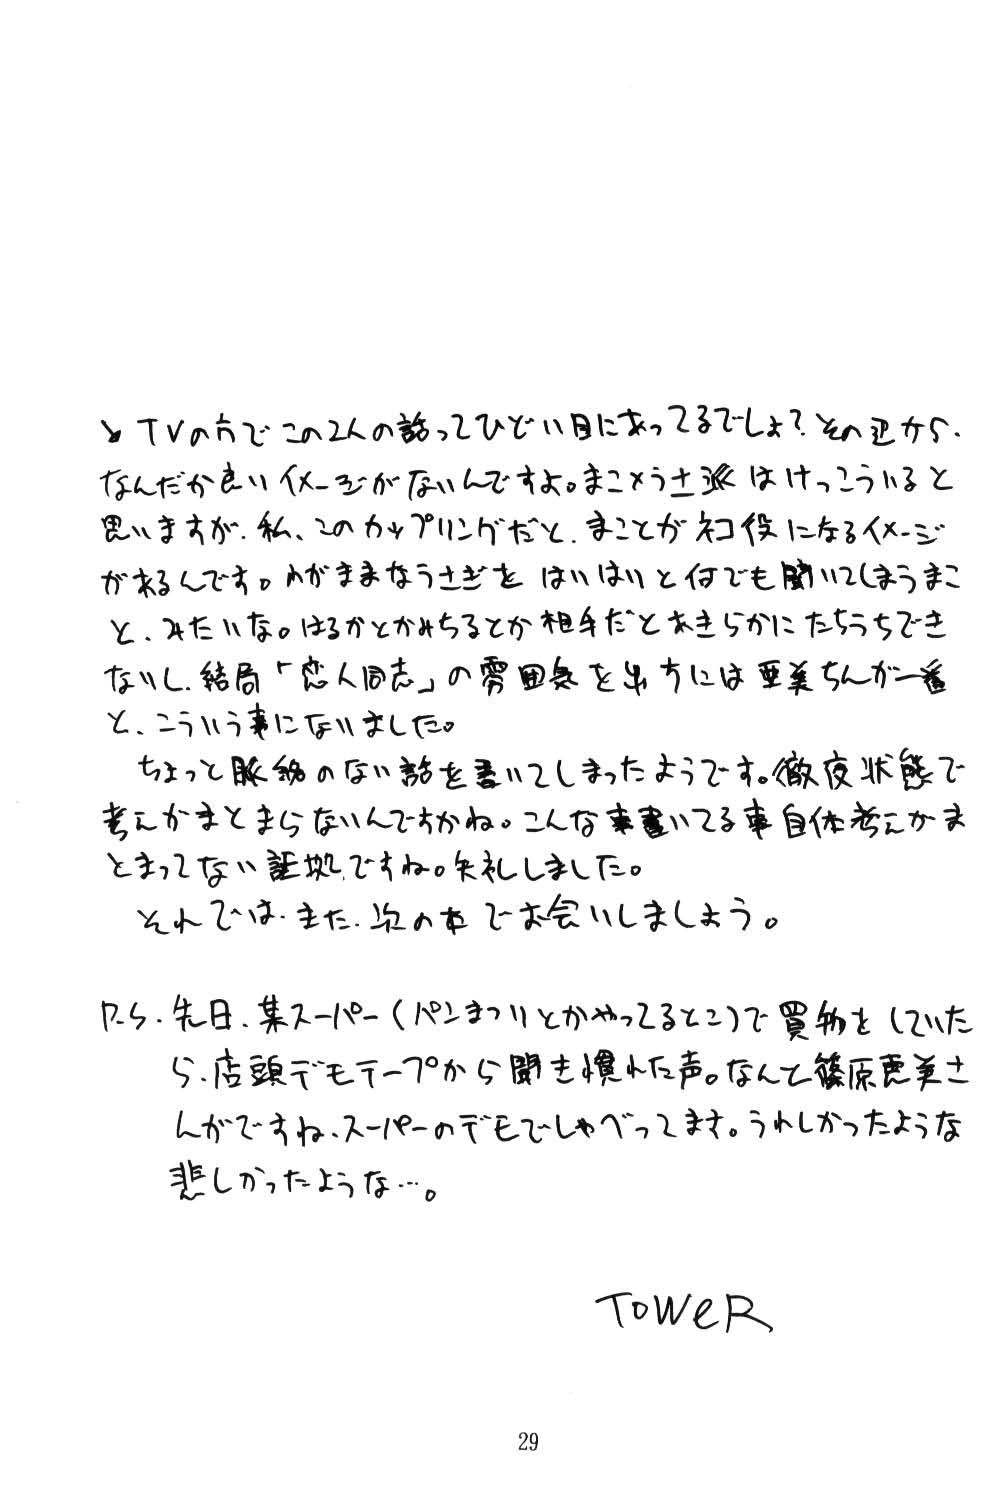 ↘TVの方でこの2人の話ってひどい目にあってるでしょ?その辺から、
なんだか良いイメージがないんですよ。まこ×うさ派はけっこういると
思いますが、私、このカップリングだと、まことがネコ役になるイメージ
があるんです。わがままなうさぎをはいはいと何でも聞いてしまうまこ
と、みたいな。はるかとかみちるとか相手だとあきらかにたちうちでき
ないし、結局「恋人同志」の雰囲気を出すには亜美ちんが一番
と、こういう事になりました。
ちょっと脈絡のない話を書いてしまったようです。徹夜状態で
考えがまとまらないんですかね。こんな事書いてる事自体考えがま
とまってない証拠ですね。失礼しました。
それでは、また、次の本でお会いしましょう。
P.S. 先日、某スーパー(パンまつりとかやってるとこ)で買物をしていた
ら、店頭デモテープから聞き慣れた声。なんと篠原恵美さ
んがですね、スーパーのデモでしゃべってます。うれしかったような
悲しかったような…。
TOWeR
29